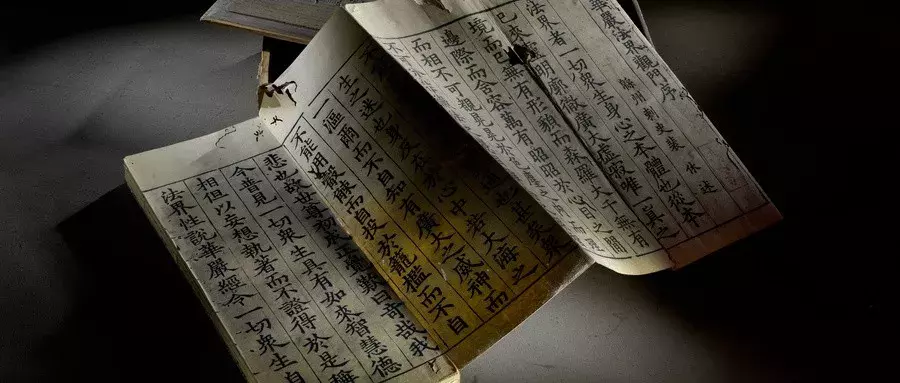 華嚴法界觀門序
州刺史裴休述
法界者一切衆生身心之本體也從本
已來靈明廓徹廣大虛寂唯一真之
境而已無有形貌而森羅大千無有
邊際而含容萬有昭昭於心目之間
而相不可覩晃晃於
不
也甚矣衆
生之迷也身反在於心中若大海之
一漚爾而不自知有廣大之威神而
不能用觳觫而自投於籠檻而不自
悲也故世尊初成正覺歎曰奇哉我
今普見一切衆生具有如來智慧德
相但以妄想執著而不證得於是稱
法界性說華嚴經令一切衆生自